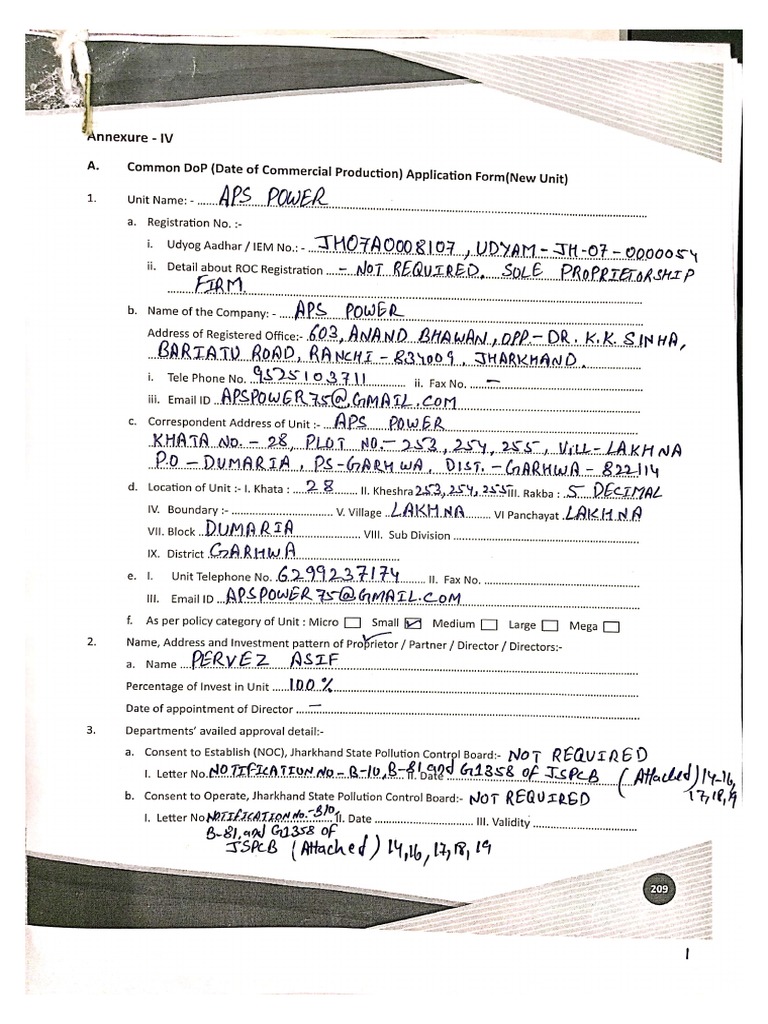 Annexure - IV
A. Common DoP (Date of Commercial Production) Application Form(New Unit)
1. Unit Name: - APS POWER
a. Registration No. :-
i. Udyog Aadhar / IEM No.: - JH07A0008107, UDYAM-JH-07-0000054
ii. Detail about ROC Registration - NOT REQUIRED. SOLE PROPRIETORSHIP
FIRM
b. Name of the Company: - APS POWER
Address of Registered Office:- 603, ANAND BHAWAN, OPP-DR. K.K. SINHA,
BARIATU ROAD, RANCHI - 834009, JHARKHAND.
i. Tele Phone No. 9525103711 ii. Fax No. -
iii. Email ID APSPOWER75@GMAIL.COM
c. Correspondent Address of Unit :- APS POWER
KHATA NO. - 28, PLOT NO.- 253, 254, 255, VILL- LAKHNA
P.O - DUMARIA, PS-GARHWA, DIST. - GARHWA - 822114
d. Location of Unit :- I. Khata : 28 II. Kheshra 253, 254, 255 III. Rakba : 5 DECIMAL
IV. Boundary :- V. Village LAKHNA VI Panchayat LAKHNA
VII. Block DUMARIA VIII. Sub Division
IX. District GARHWA
e. I. Unit Telephone No. 6299237174 II. Fax No.
III. Email ID APSPOWER75@GMAIL.COM
f. As per policy category of Unit : Micro ☐ Small ☑ Medium ☐ Large ☐ Mega ☐
2. Name, Address and Investment pattern of Proprietor / Partner / Director / Directors:-
a. Name PERVEZ ASIF
Percentage of Invest in Unit 100%
Date of appointment of Director -
3. Departments' availed approval detail:-
a. Consent to Establish (NOC), Jharkhand State Pollution Control Board:- NOT REQUIRED
I. Letter No. NOTIFICATION NO - B-10, B-81 and G1358 of JSPCB II. Date (Attached) 14-16,
17,18,19
b. Consent to Operate, Jharkhand State Pollution Control Board:- NOT REQUIRED
I. Letter No. NOTIFICATION No. -B10, II. Date III. Validity
B-81, and G1358 of
JSPCB (Attached) 14,16,17,18,19
209
1